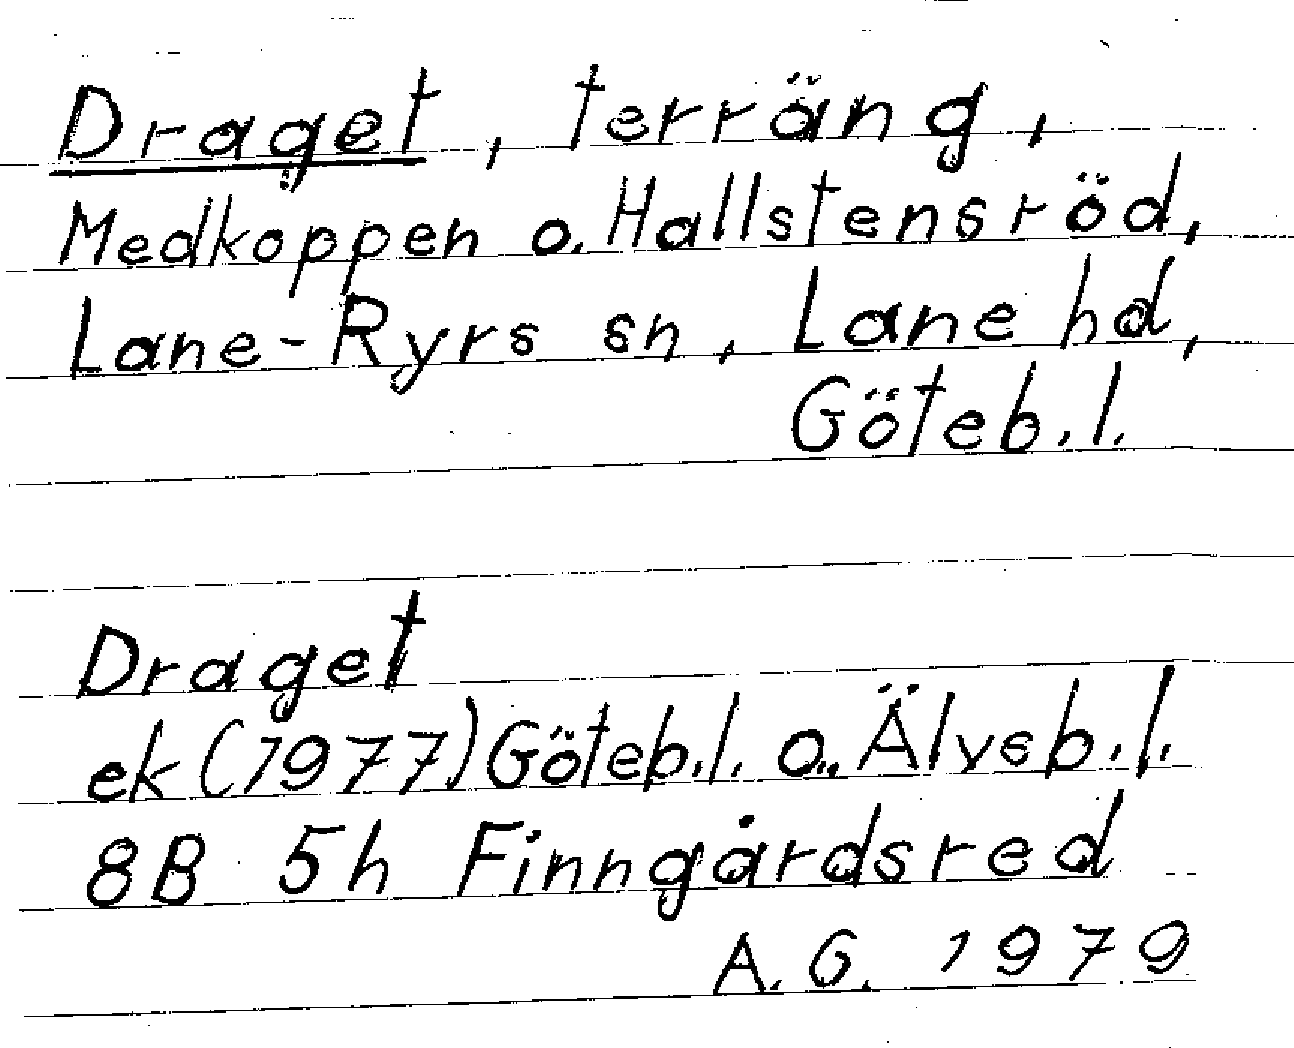 Draget, terräng,
Medkoppen o. Hallstensröd,
Lane-Ryrs sn, Lane hd,
Göteb.l.
Draget
ek (1977) Göteb.l. o. Älvsb.l.
8B 5h Finngårdsred
A.G. 1979